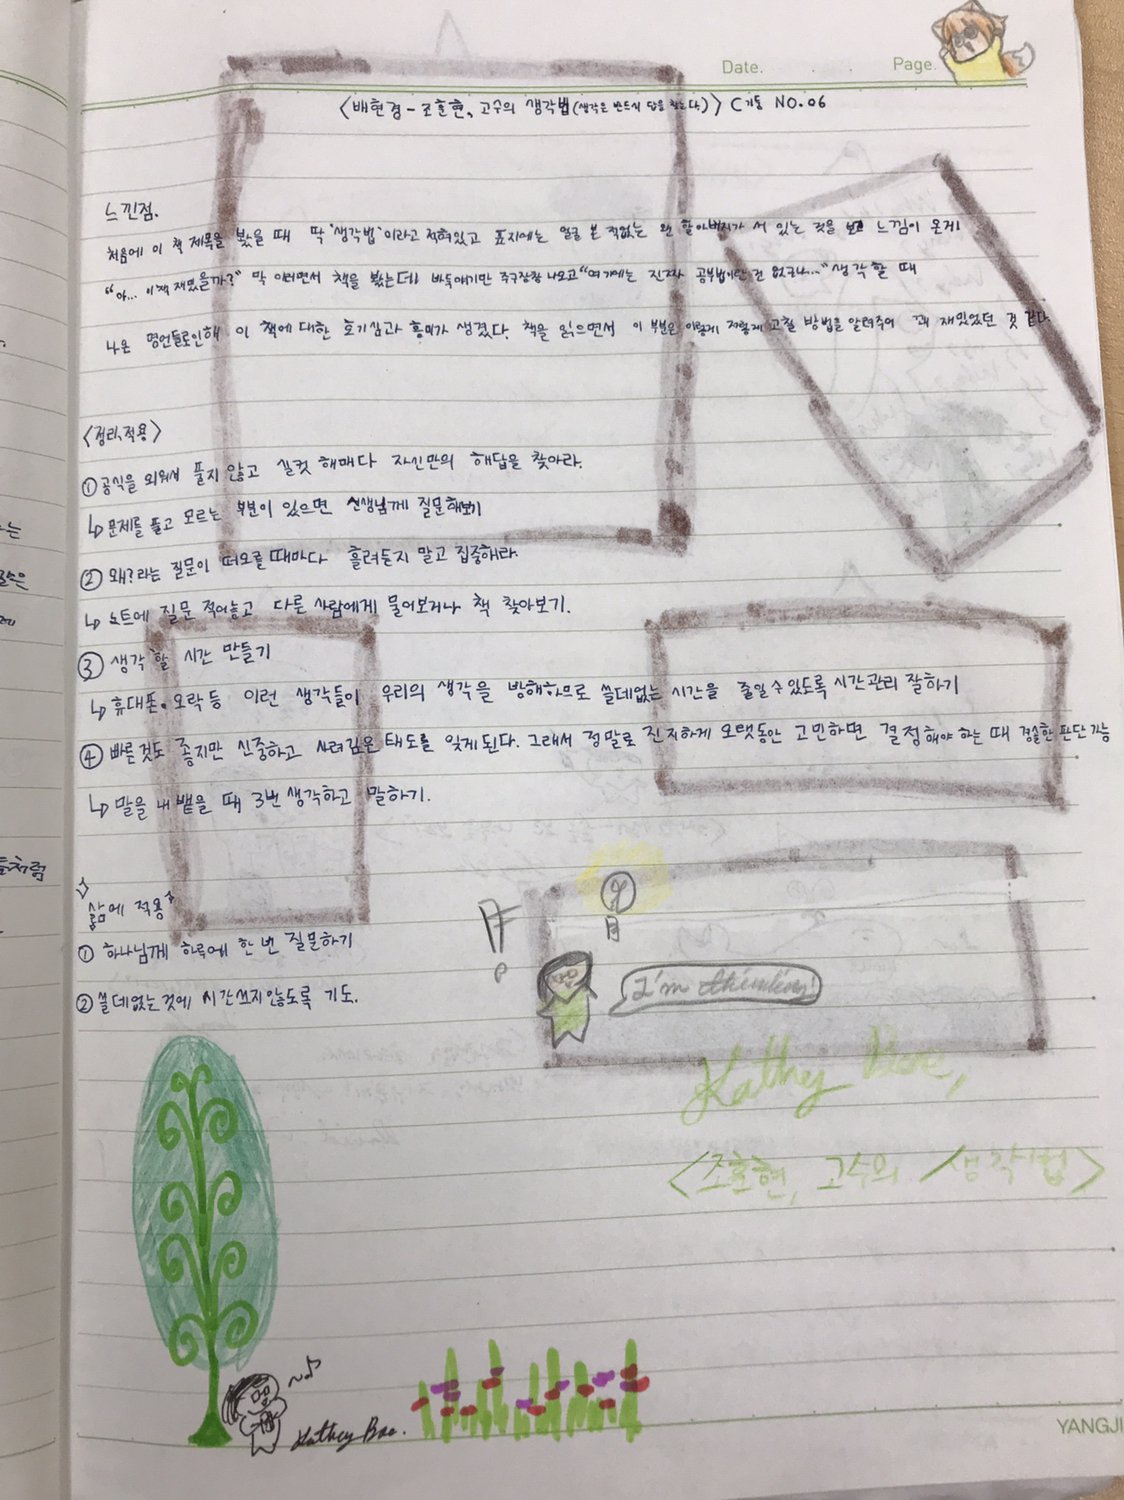 Date. Page.
<배현경 - 조훈현, 고수의 생각법(생각은 반드시 답을 찾는다)> C기둥 NO.06
느낀점.
처음에 이 책 제목을 봤을 때 딱 '생각법'이라고 적혀있고 표지에는 얼굴 본 적없는 왠 할아버지가 서 있는 것을 보 느낌이 온게
"아... 이책 재밌을까?" 막 이러면서 책을 봤는데 바둑얘기만 주구장창 나오고 "여기에는 진짜 공부법이란 건 없구나..." 생각할 때
나온 명언들로인해 이 책에 대한 호기심과 흥미가 생겼다. 책을 읽으면서 이 부분은 이렇게 저렇게 고칠 방법을 알려주어 꽤 재밌었던 것 같다.
<정리, 적용>
① 공식을 외워서 풀지 않고 실컷 해매다 자신만의 해답을 찾아라.
↳ 문제를 풀고 모르는 부분이 있으면 선생님께 질문해보기
② 왜?라는 질문이 떠오를때마다 흘려듣지 말고 집중해라.
↳ 노트에 질문 적어놓고 다른 사람에게 물어보거나 책 찾아보기.
③ 생각할 시간 만들기
↳ 휴대폰, 오락 등 이런 생각들이 우리의 생각을 방해하므로 쓸데없는 시간을 줄일수있도록 시간관리 잘하기
④ 빠른것도 좋지만 신중하고 사려깊은 태도를 잊게된다. 그래서 정말로 진지하게 오랫동안 고민하면 결정해야 하는 때 경솔한 판단 가능
↳ 말을 내뱉을 때 3번 생각하고 말하기.
삶에 적용
① 하나님께 하루에 한 번 질문하기
② 쓸데없는것에 시간쓰지않도록 기도.
I'm thinking!
Kathy Bae,
<조훈현, 고수의 생각법>
Kathey Bae.
YANGJI